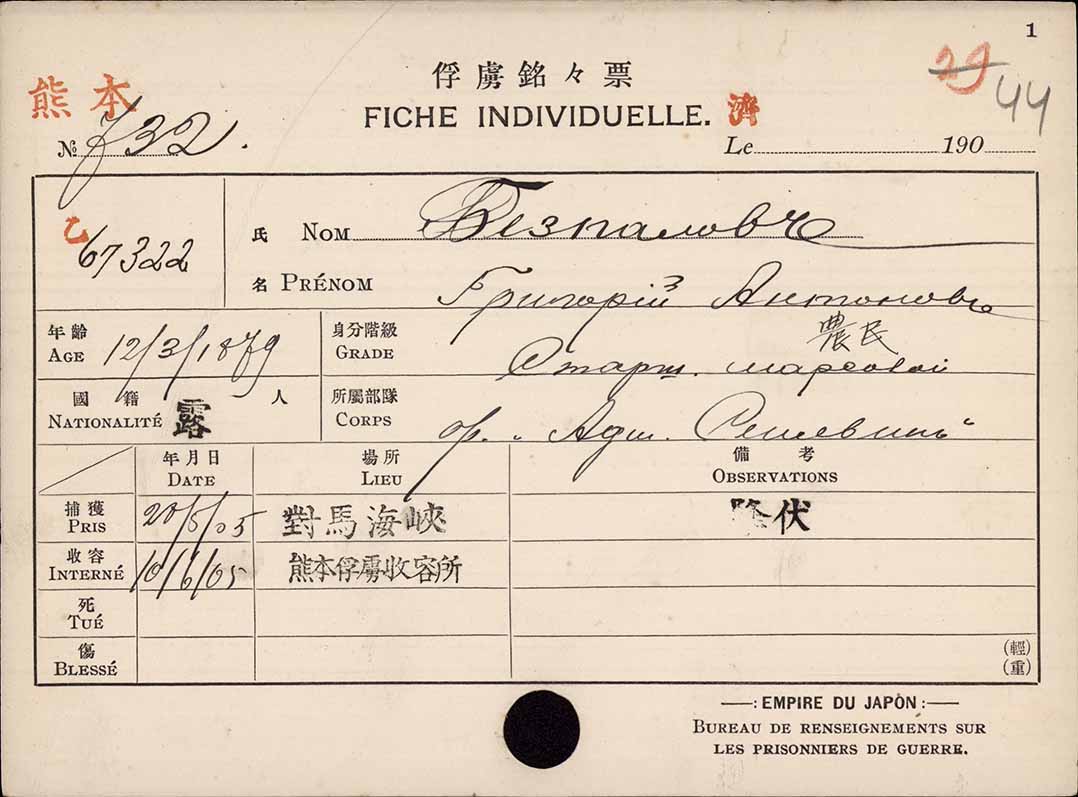 1
俘虜銘々票
29
44
熊本
FICHE INDIVIDUELLE.
濟
№ 732.
Le 190
乙
67322
氏 NOM Безпаловъ
名 PRÉNOM Григорій Антоновъ
年齡
AGE 12/3/1879
身分階級
GRADE
農民
Старш. марсовой
國籍 人
NATIONALITÉ 露
所屬部隊
CORPS
бр. „Адм. Сенявинъ“
年月日
DATE
場所
LIEU
備考
OBSERVATIONS
捕獲
PRIS
/5/05 對馬海峽 降伏
收容
INTERNÉ 10/6/05 熊本俘虜收容所
死
TUÉ
傷
BLESSÉ
(輕)
(重)
—: EMPIRE DU JAPON :—
BUREAU DE RENSEIGNEMENTS SUR
LES PRISONNIERS DE GUERRE.